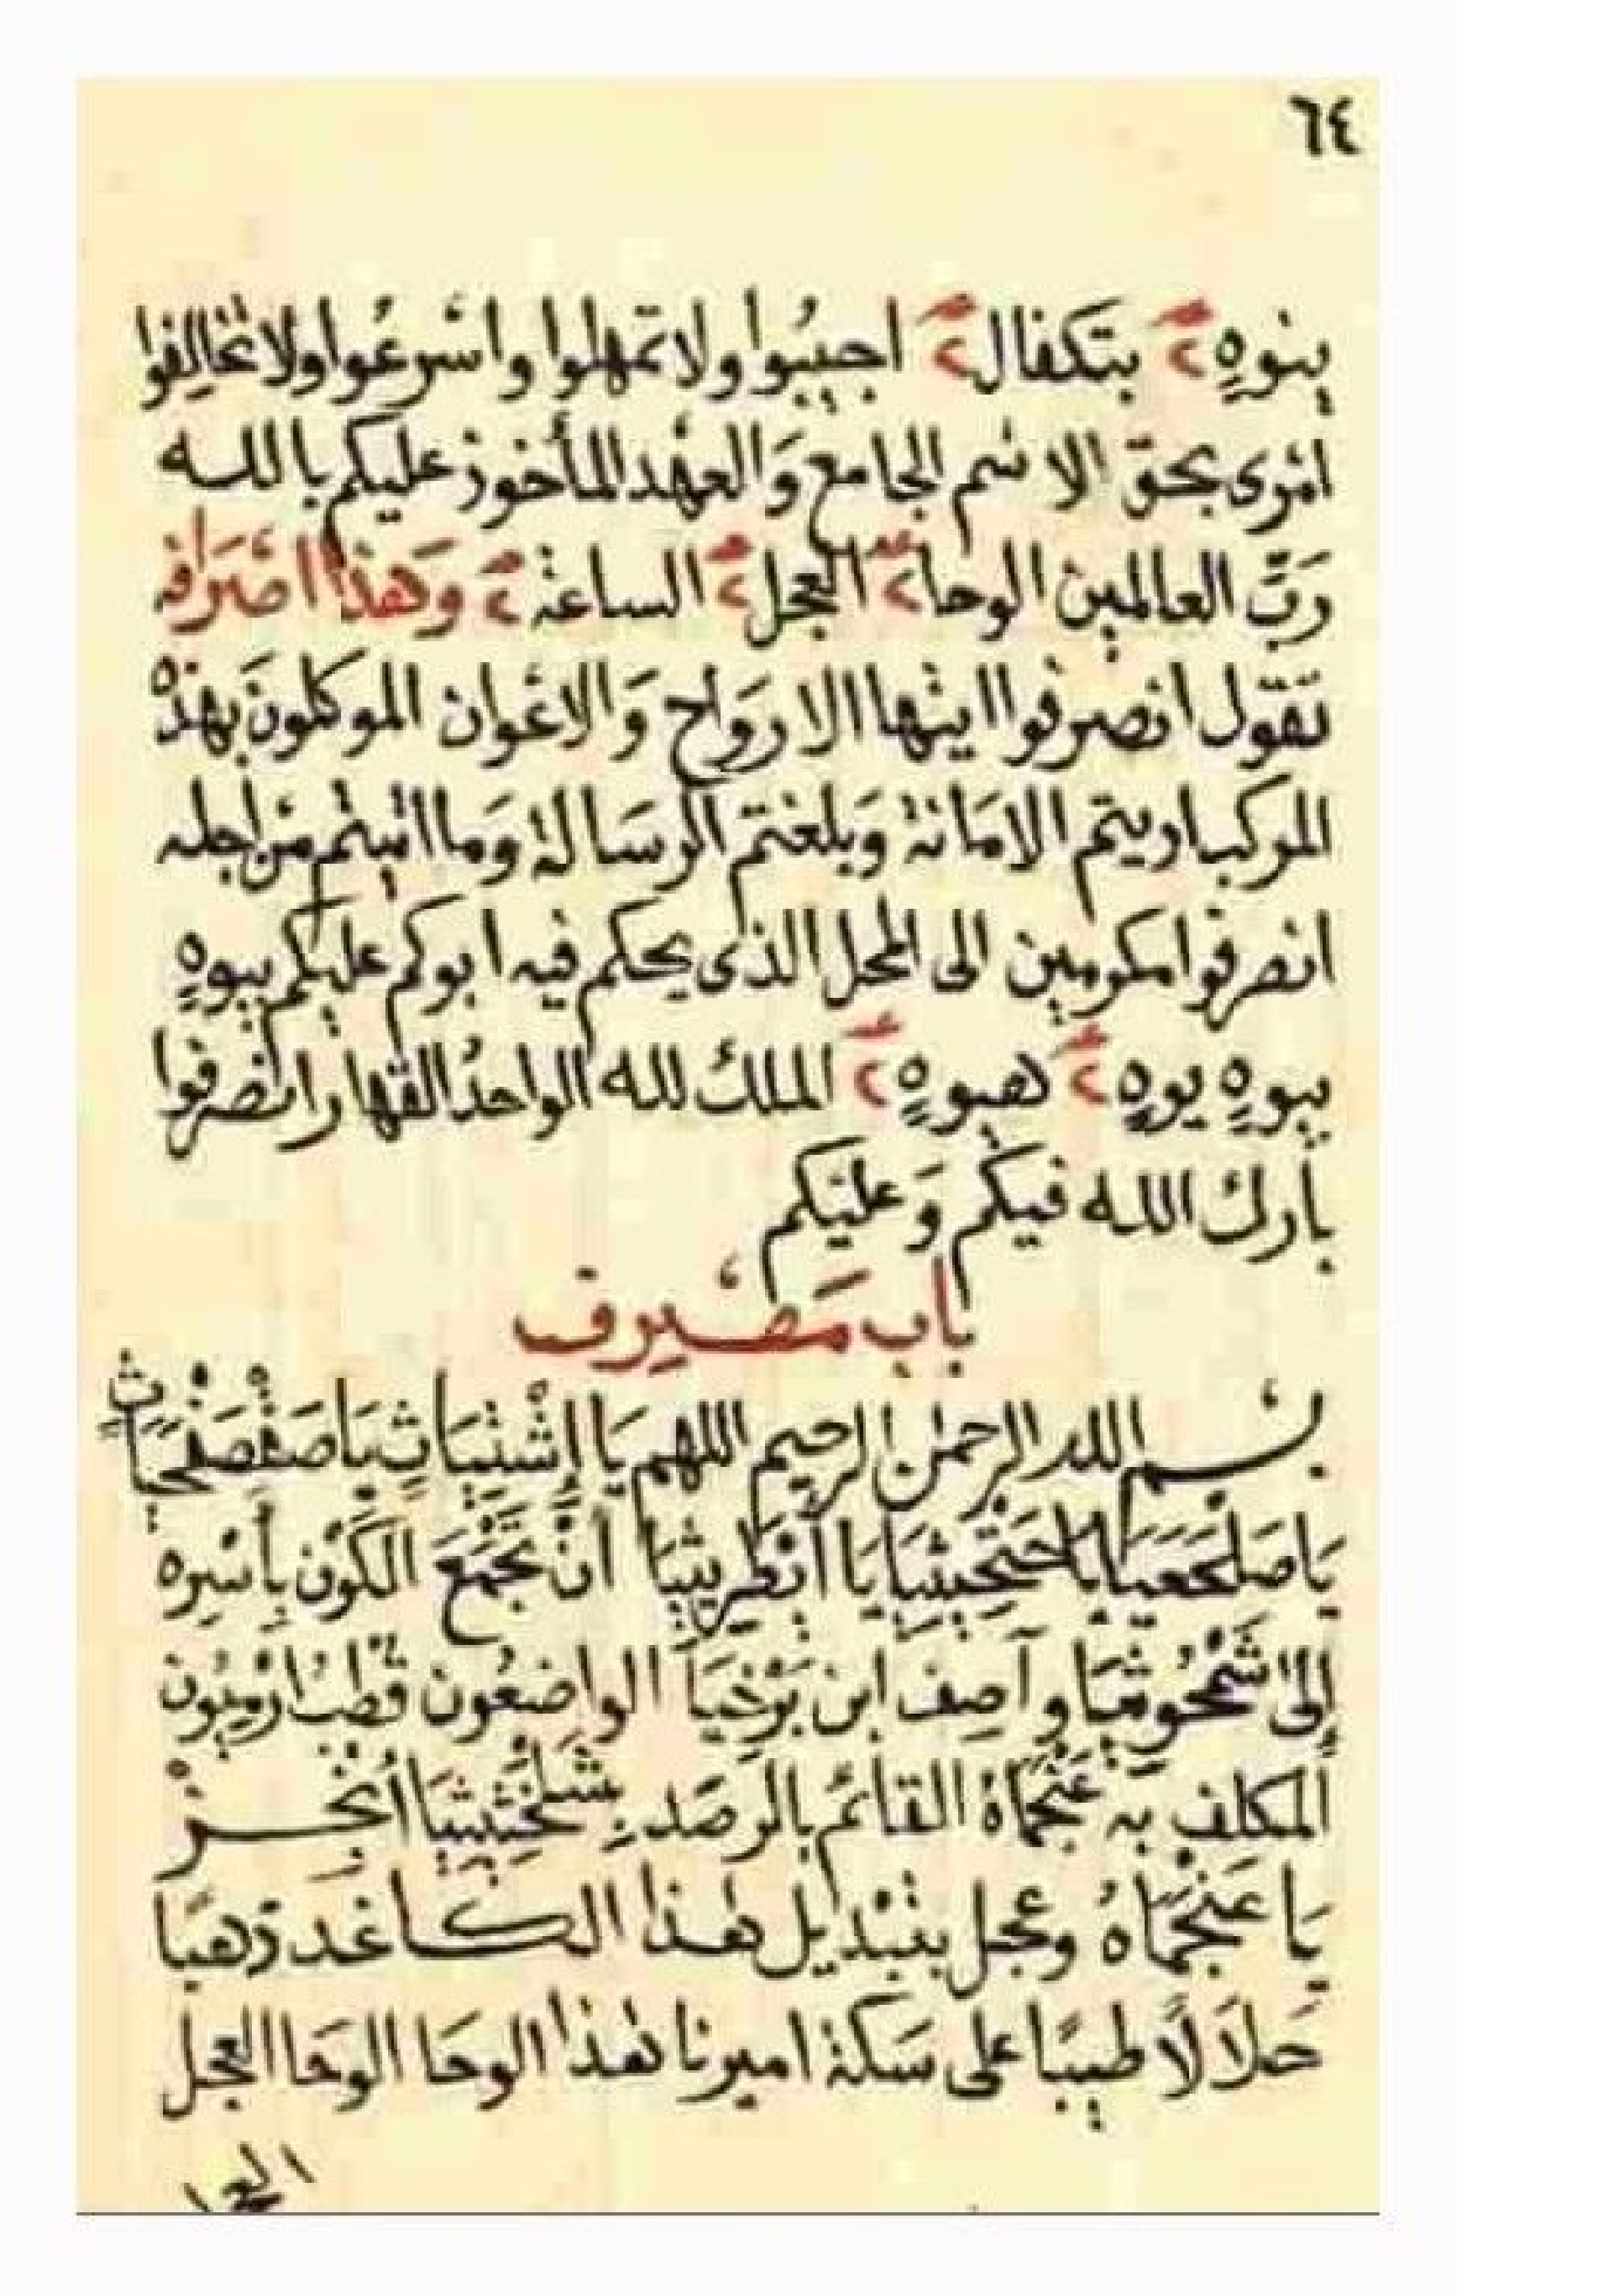 ٦٤
ينوهٍ ٢ بتكفال ٢ اجيبُوا ولا تمهلوا واسْرعُوا ولا تخالِفوا
امْرى بحق الاسْم الجامع وَالعهْد المأخوذ عليكم بالله
رَبّ العالمين الوحا ٢ العجل ٢ الساعة ٢ وَهَذا اصْرَافه
تقول انصرفوا ايتها الارَوَاح وَالاعْوان الموكلونَ بهذْه
المركب اديتم الامَانة وَبلغتم الرسَالة وَما اتيتم من اجله
انصرفوا مكرمين الى المحل الذى يحكم فيه ابوكم عليكم بيوهٍ
بيوهٍ يوهٍ ٢ هبوهٍ ٢ الملك لله الواحدُ القهار انصرفوا
بارك الله فيكم وَعليَكم
باب
بسم الله الرحمن الرحيم اللهم يَا
يَا يَا انْ تجْمَعَ الكَوْن بأسْرِه
إلى وآصِف ابن بَرْخيَا الواضِعُون قطْب
المكلف به القائم بالرصَدِ
يَا وعجل بتبْديل هذا الكاغد ذهبًا
حَلاَلاً طيبًا على سَكة اميرنا هذا الوحا الوَحا العجل